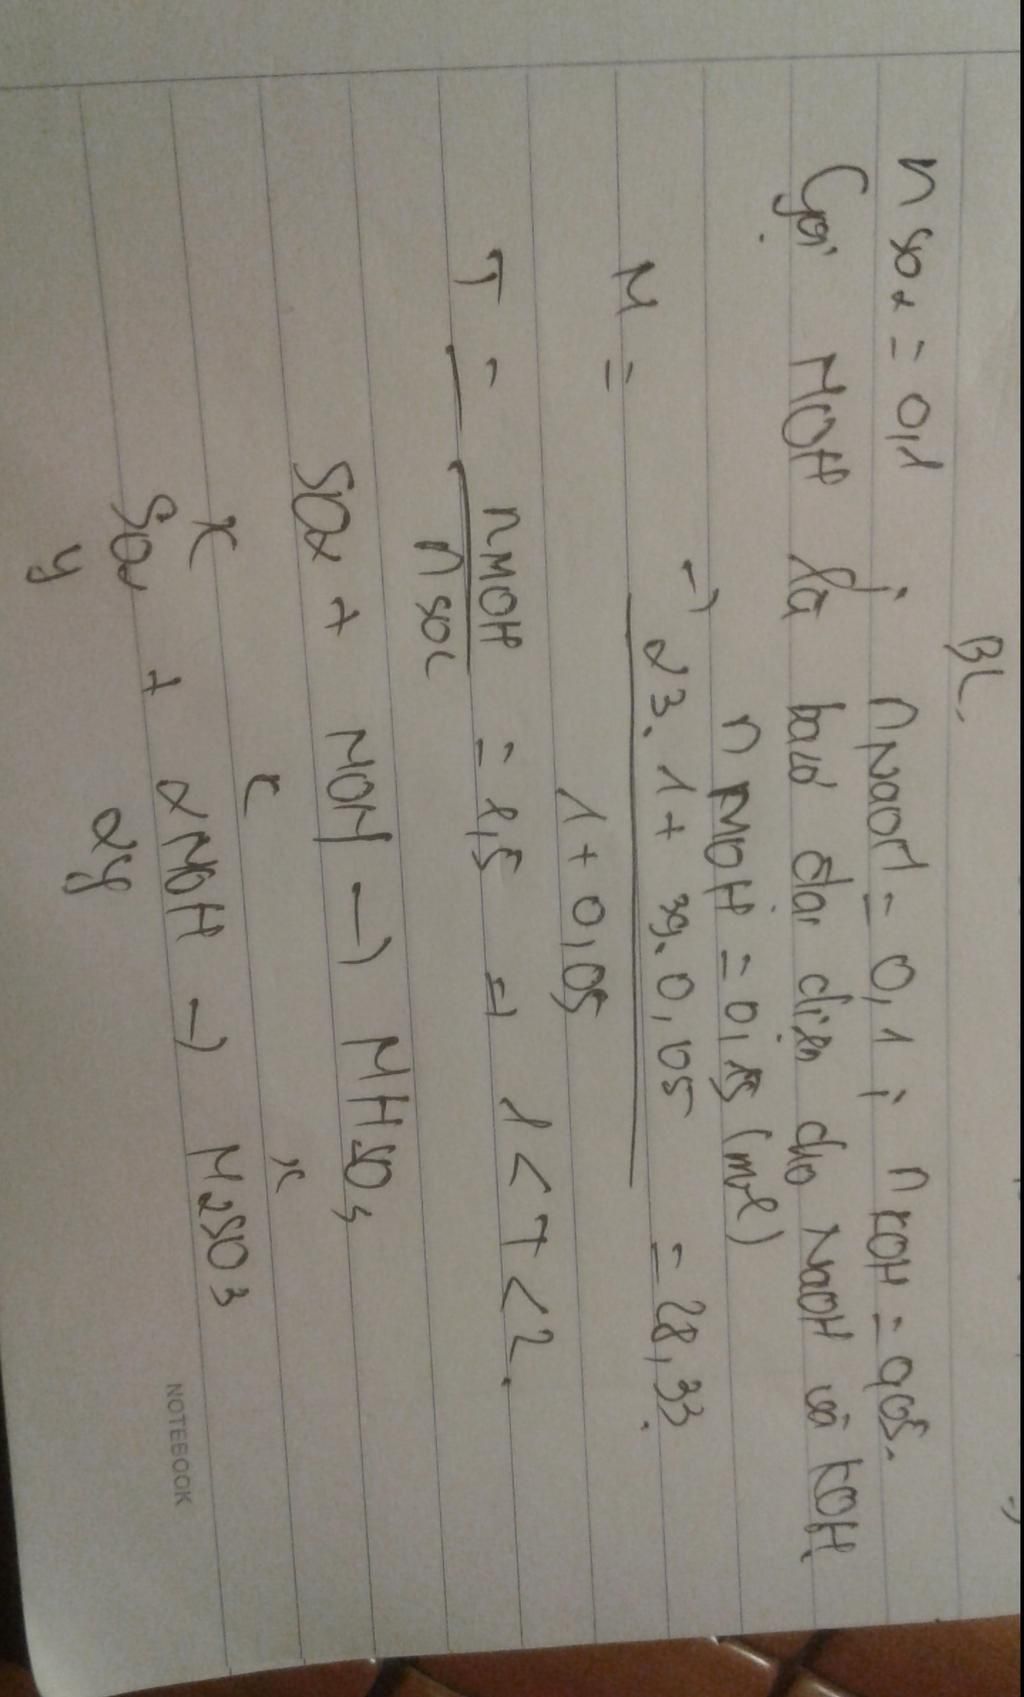 BL.
n SO2 = 0,1 ; n NaOH = 0,1 ; n KOH = 0,05.
Gọi MOH là bazơ đại diện cho NaOH và KOH.
n MOH = 0,15 (mol)
→ M = 23.1 + 39.0,05 / 1 + 0,05 = 28,33.
T = nMOH / n SO2 = 1,5 ⇒ 1 < T < 2.
SO2 + MOH → MHSO3
x x x
SO2 + 2MOH → M2SO3
y 2y
NOTEBOOK